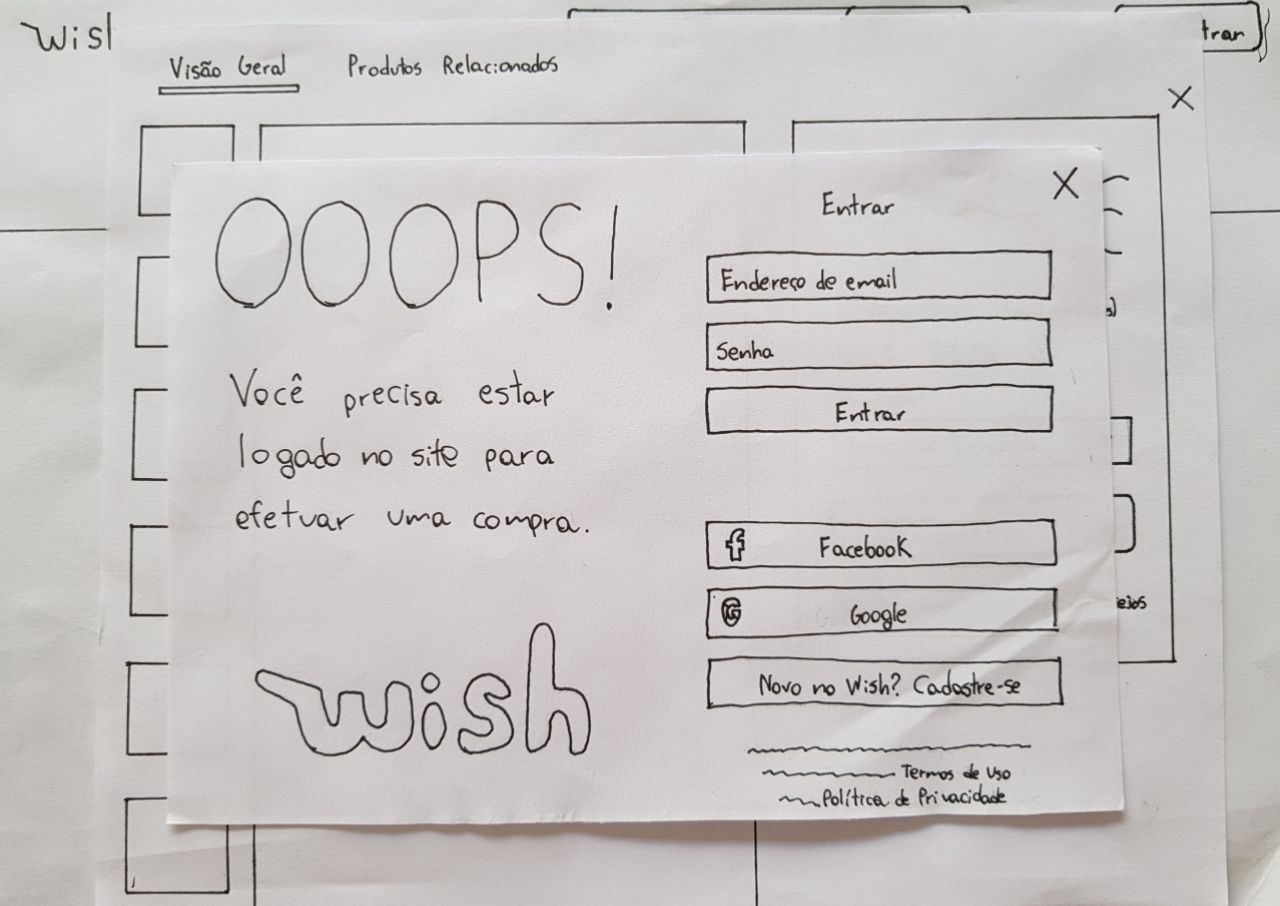 Wish
trar
Visão Geral
Produtos Relacionados
X
OOOPS!
Você precisa estar
logado no site para
efetuar uma compra.
wish
X
Entrar
Endereço de email
Senha
Entrar
f Facebook
G Google
Novo no Wish? Cadastre-se
Termos de Uso
Política de Privacidade
s)
ejos